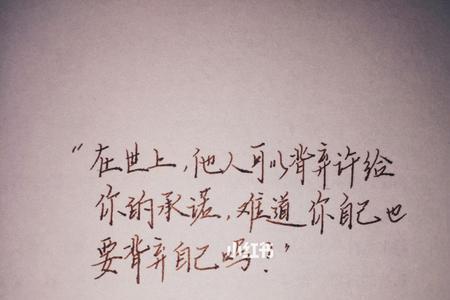 “在世上，他人可以背弃许给
你的承诺，难道你自己也
要背弃自己吗？”
小红书